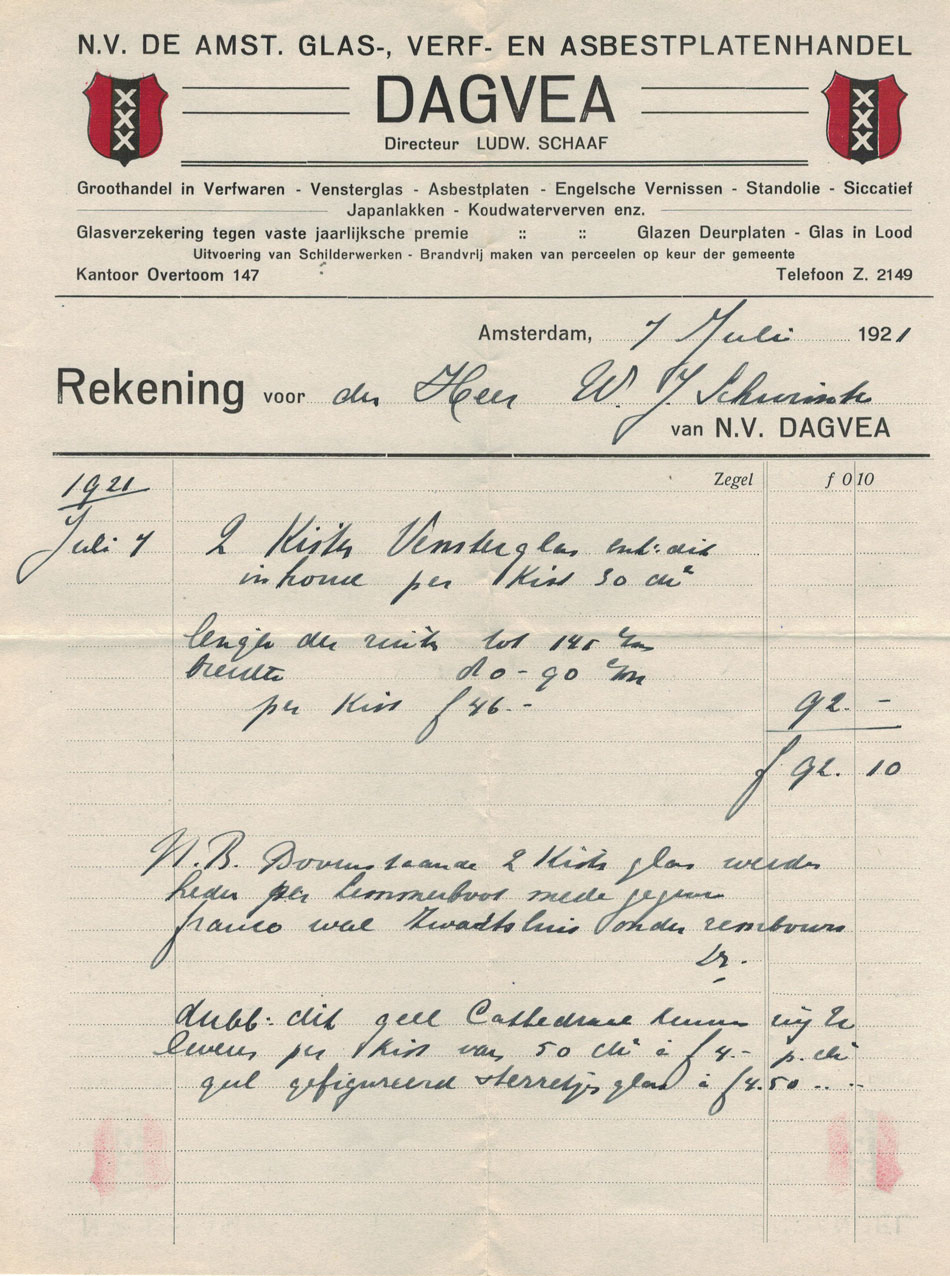 N.V. DE AMST. GLAS-, VERF- EN ASBESTPLATENHANDEL
XXX XXX
DAGVEA
Directeur LUDW. SCHAAF
Groothandel in Verfwaren - Vensterglas - Asbestplaten - Engelsche Vernissen - Standolie - Siccatief
Japanlakken - Koudwaterverven enz.
Glasverzekering tegen vaste jaarlijksche premie :: :: Glazen Deurplaten - Glas in Lood
Uitvoering van Schilderwerken - Brandvrij maken van perceelen op keur der gemeente
Kantoor Overtoom 147 Telefoon Z. 2149
Amsterdam, 7 Juli 1921
Rekening voor den Heer W. J.
van N.V. DAGVEA
1921 Zegel f 0 10
Juli 7 2 Kisten Vensterglas enk: dik
inhoud per Kist 30
lengte der ruiten tot 145 c/m
breedte do - 90 c/m
per Kist f 46.- 92. -
f 92. 10
N.B. Bovenstaande 2 Kisten glas werden
heden per Lemmerboot mede gegeven
franco wal Zwartsluis onder rembours
dubb: dik geel Cathedraal kunnen wij U
leveren per Kist van 50 à f 4.- p.
geel gefigureerd sterretjes glas à f 4.50 .. ..